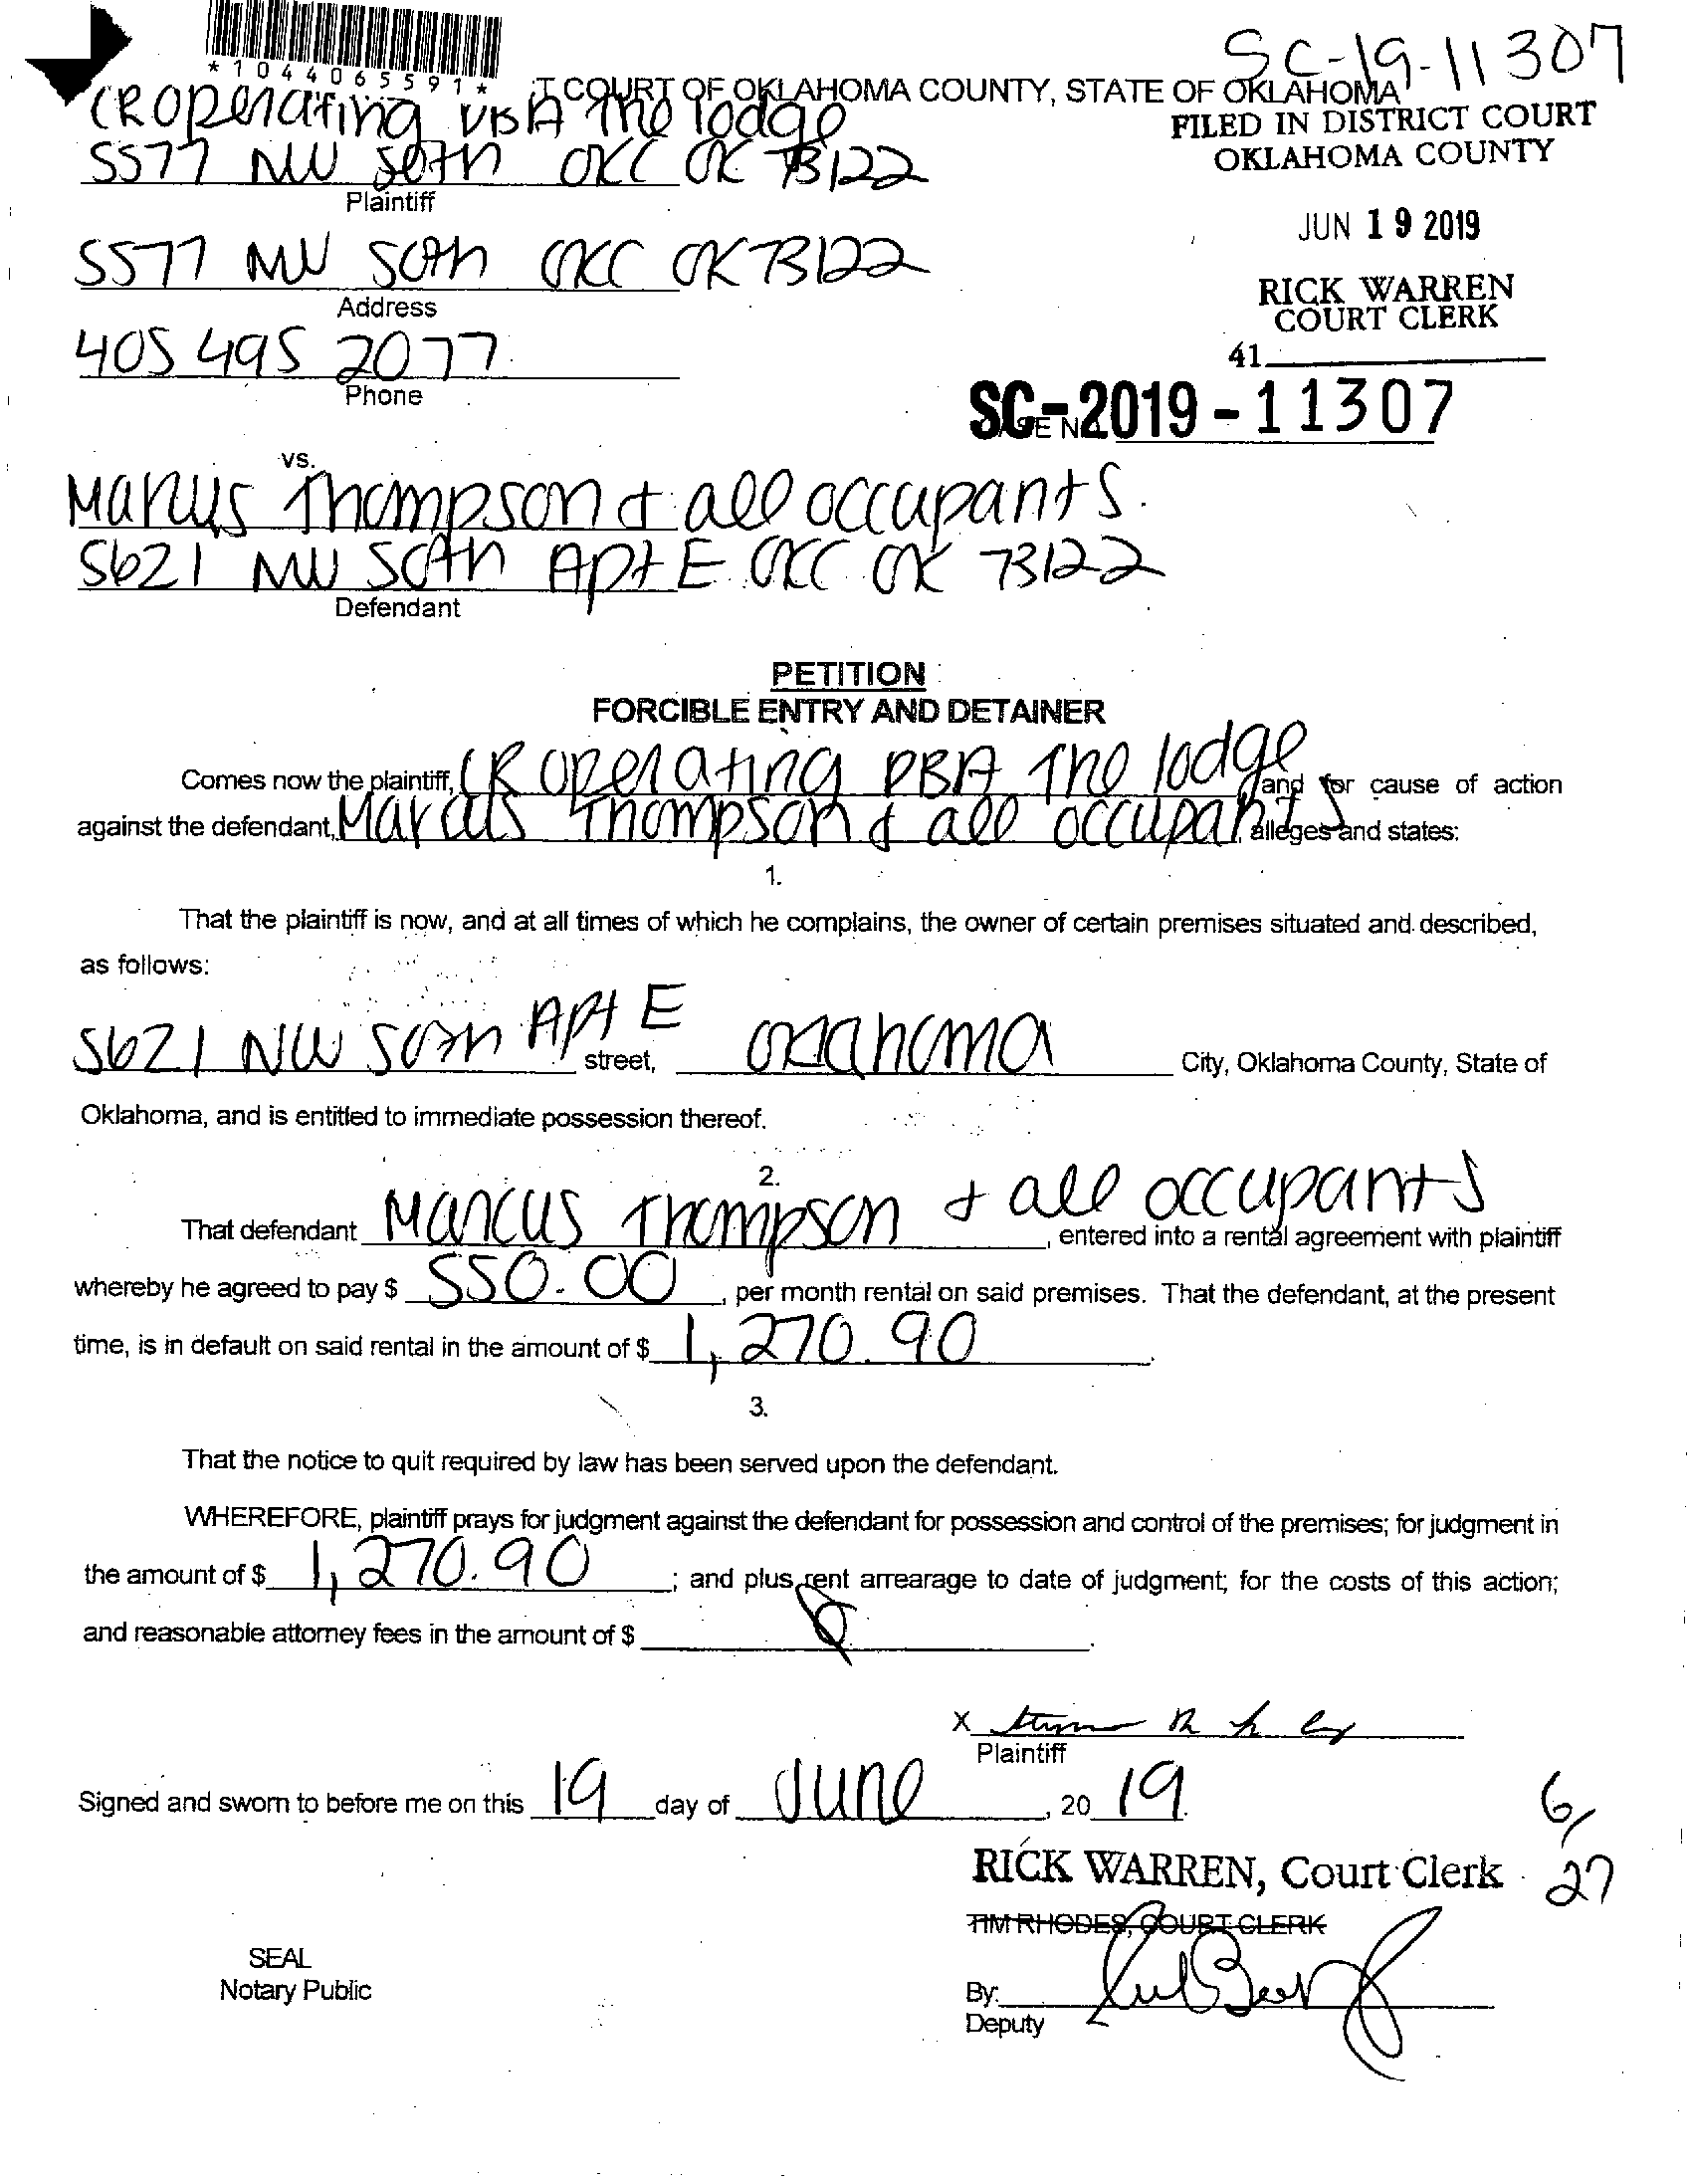 SC-19-11307
*1044065591*
T COURT OF OKLAHOMA COUNTY, STATE OF OKLAHOMA
CR Operating DBA The lodge
FILED IN DISTRICT COURT
OKLAHOMA COUNTY
5577 NW 50th OKC OK 73122
Plaintiff
JUN 19 2019
5577 NW 50th OKC OK 73122
Address
RICK WARREN
COURT CLERK
405 495 2077
Phone
41
SC-2019-11307
vs.
Marcus Thompson & all occupants.
5621 NW 50th Apt E OKC OK 73122
Defendant
PETITION
FORCIBLE ENTRY AND DETAINER
Comes now the plaintiff, CR Operating DBA The lodge and for cause of action
against the defendant, Marcus Thompson & all occupants, alleges and states:
1.
That the plaintiff is now, and at all times of which he complains, the owner of certain premises situated and described,
as follows:
5621 NW 50th Apt E street, Oklahoma City, Oklahoma County, State of
Oklahoma, and is entitled to immediate possession thereof.
2.
That defendant Marcus Thompson & all occupants, entered into a rental agreement with plaintiff
whereby he agreed to pay $ 550.00, per month rental on said premises. That the defendant, at the present
time, is in default on said rental in the amount of $ 1,270.90.
3.
That the notice to quit required by law has been served upon the defendant.
WHEREFORE, plaintiff prays for judgment against the defendant for possession and control of the premises; for judgment in
the amount of $ 1,270.90; and plus rent arrearage to date of judgment; for the costs of this action;
and reasonable attorney fees in the amount of $
X
Plaintiff
Signed and sworn to before me on this 19 day of June, 20 19.
6/27
RICK WARREN, Court Clerk
TIM RHODES, COURT CLERK
SEAL
Notary Public
By:
Deputy